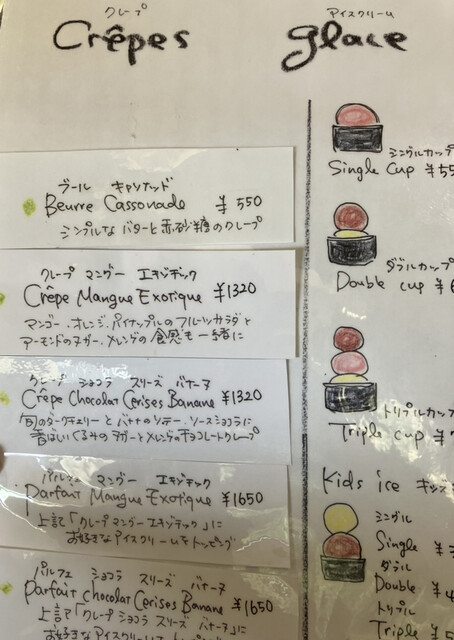 クレープ
Crêpes
ブール キャソナッド
Beurre Cassonade ¥550
シンプルな バターと赤砂糖のクレープ
クレープ マングー エキゾチック
Crêpe Mangue Exotique ¥1320
マンゴー、オレンジ、パイナップルのフルーツサラダと
アーモンドのヌガー、メレンゲの食感も一緒に
クレープ ショコラ スリーズ バナーヌ
Crêpe Chocolat Cerises Banane ¥1320
旬のダークチェリーとバナナのソテー、ソースショコラに
香ばしいくるみのヌガーとメレンゲのチョコレートクレープ
パルフェ マングー エキゾチック
Parfait Mangue Exotique ¥1650
上記「クレープ マングー エキゾチック」に
お好きなアイスクリームをトッピング
パルフェ ショコラ スリーズ バナーヌ
Parfait chocolat Cerises Banane ¥1650
上記「クレープ ショコラ スリーズ バナーヌ」に
お好きなアイスクリーム
アイスクリーム
glace
シングルカップ
Single Cup ¥55
ダブルカップ
Double cup ¥
トリプルカップ
Triple cup ¥
Kids ice キッズ
シングル
Single ¥
ダブル
Double ¥
トリプル
Triple ¥